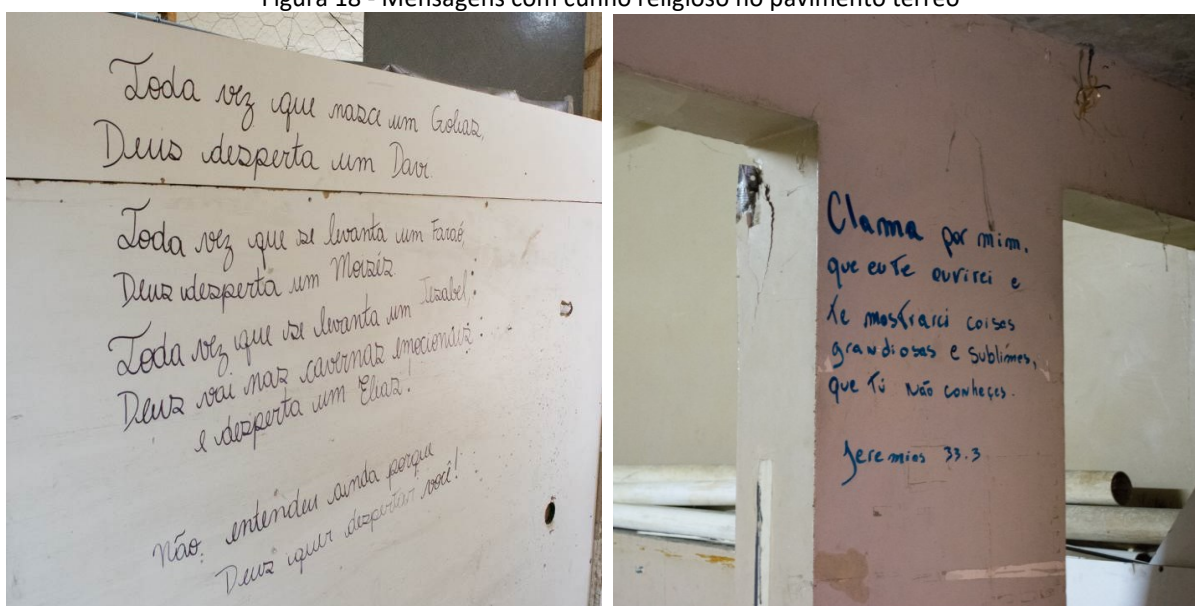 Figura 18 - Mensagens com cunho religioso no pavimento térreo
Toda vez que nasce um Golias,
Deus desperta um Davi.
Toda vez que se levanta um Faraó,
Deus desperta um Moisés
Toda vez que se levanta um Jezabel,
Deus vai nas cavernas emocionais
e desperta um Elias!
Não entendeu ainda porque
Deus quer despertar você!
Clama por mim,
que eu te ouvirei e
te mostrarei coisas
grandiosas e sublimes,
que Tú não conheçes.
Jeremias 33.3